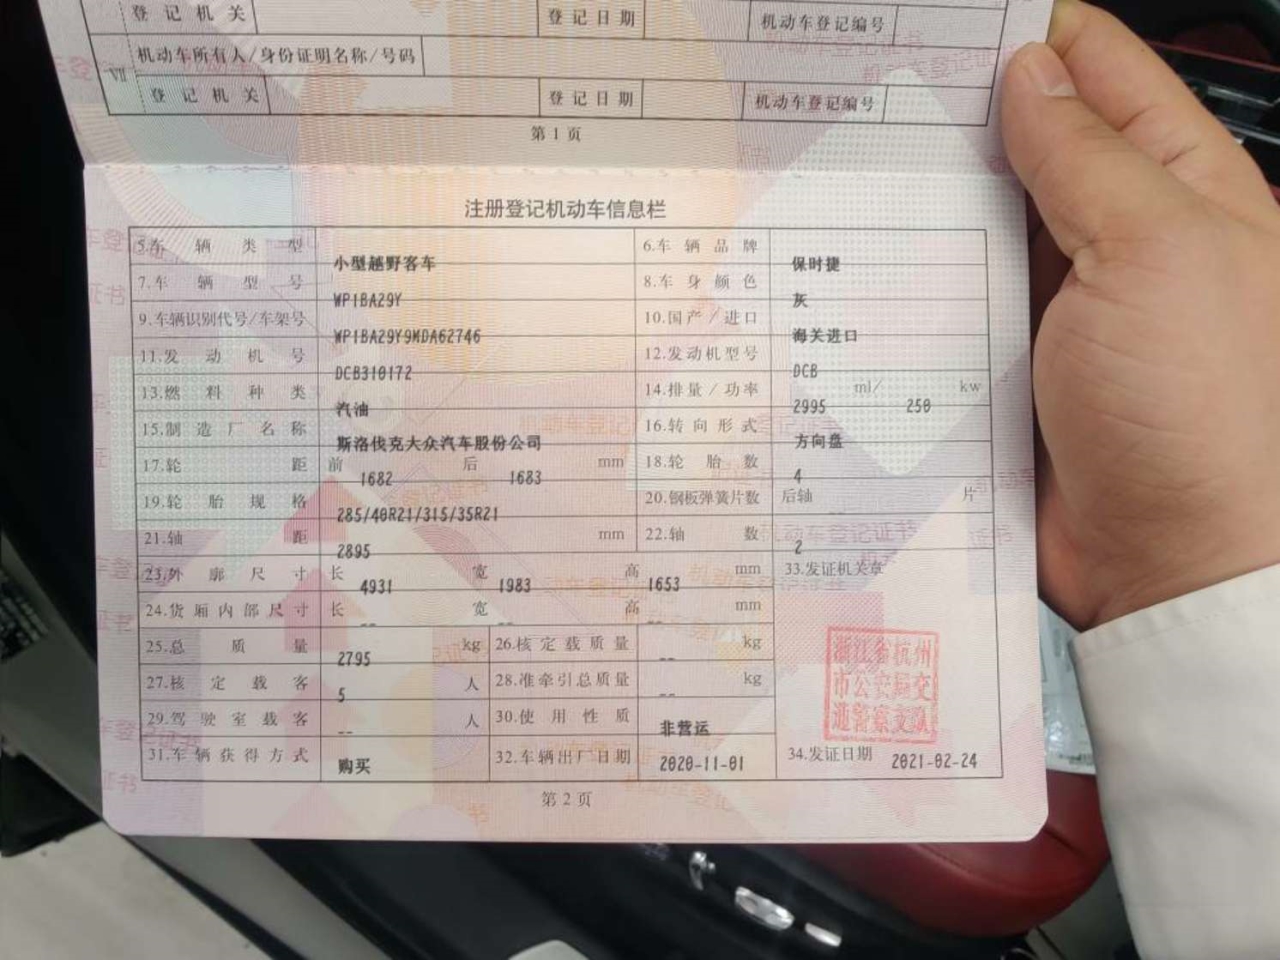 登记机关 登记日期 机动车登记编号
Ⅶ 机动车所有人/身份证明名称/号码
登记机关 登记日期 机动车登记编号
第1页
注册登记机动车信息栏
5.车辆类型 小型越野客车 6.车辆品牌 保时捷
7.车辆型号 WP1BA29Y 8.车身颜色 灰
9.车辆识别代号/车架号 WP1BA29Y9MDA62746 10.国产/进口 海关进口
11.发动机号 DCB310172 12.发动机型号 DCB
13.燃料种类 汽油 14.排量/功率 2995 ml/ 250 kw
15.制造厂名称 斯洛伐克大众汽车股份公司 16.转向形式 方向盘
17.轮距 前 1682 后 1683 mm 18.轮胎数 4
19.轮胎规格 285/40R21/315/35R21 20.钢板弹簧片数 后轴 -- 片
21.轴距 2895 mm 22.轴数 2
23.外廓尺寸 长 4931 宽 1983 高 1653 mm 33.发证机关章
24.货厢内部尺寸 长 -- 宽 -- 高 -- mm
25.总质量 2795 kg 26.核定载质量 -- kg
27.核定载客 5 人 28.准牵引总质量 -- kg
29.驾驶室载客 -- 人 30.使用性质 非营运
浙江省杭州
市公安局交
通警察支队
31.车辆获得方式 购买 32.车辆出厂日期 2020-11-01 34.发证日期 2021-02-24
第2页